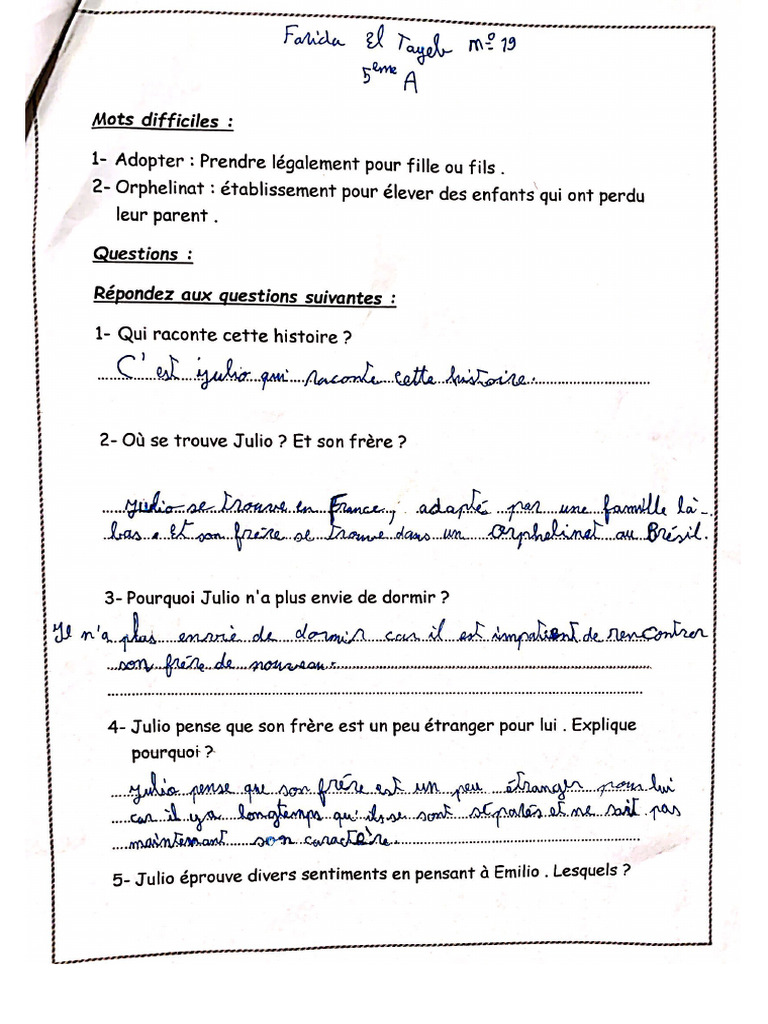 Farida El Tayeb nº 19
5eme A
Mots difficiles :
1- Adopter : Prendre légalement pour fille ou fils .
2- Orphelinat : établissement pour élever des enfants qui ont perdu
leur parent .
Questions :
Répondez aux questions suivantes :
1- Qui raconte cette histoire ?
C'est julio qui raconte cette histoire.
2- Où se trouve Julio ? Et son frère ?
julio se trouve en France, adapté par une famille là-
bas. Et son freire se trouve dans un orphelinet au Brésil.
3- Pourquoi Julio n'a plus envie de dormir ?
Il n'a plus envie de dormir car il est impatient de rencontrer
son frére de nouveau.
4- Julio pense que son frère est un peu étranger pour lui . Explique
pourquoi ?
julio pense que son frére est un peu étranger pour lui
car il ya longtemps qu'ils se sont séparés et ne sait pas
maintenant son caractère.
5- Julio éprouve divers sentiments en pensant à Emilio . Lesquels ?